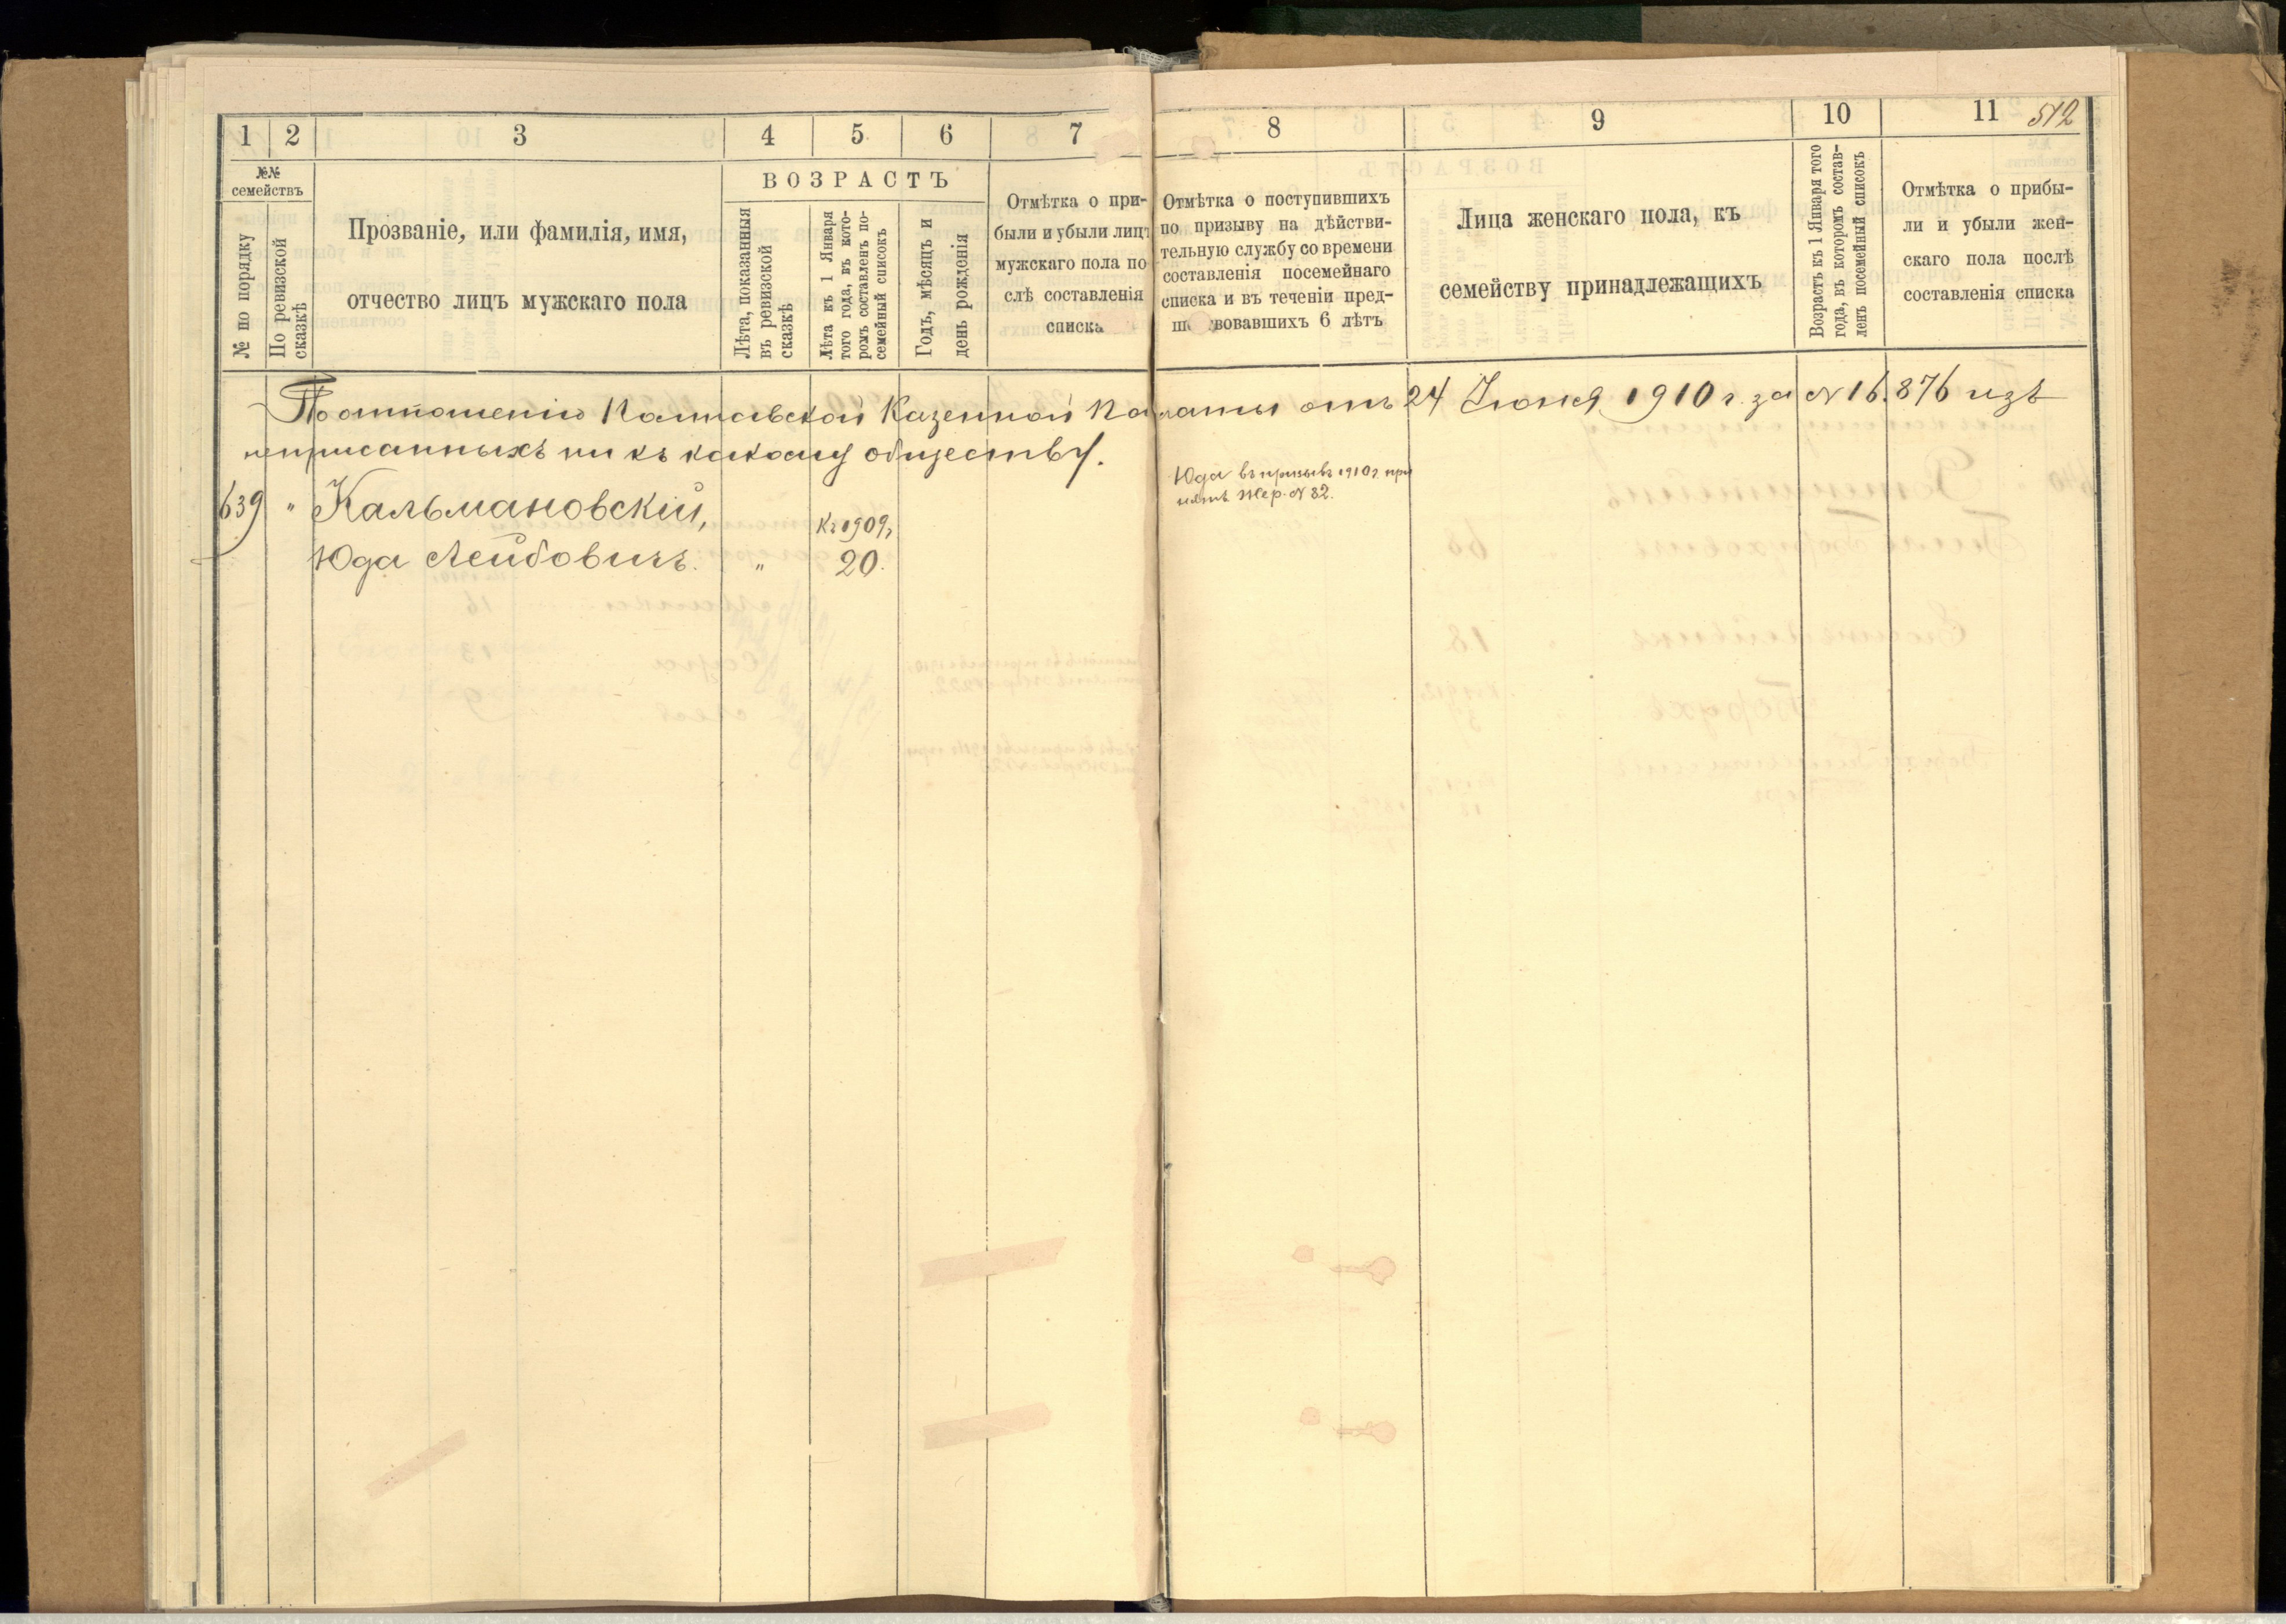 1 2 3 4 5 6 7 8 9 10 11 512
№№ семействъ
№ по порядку
По ревизской сказкѣ
Прозваніе, или фамилія, имя,
отчество лицъ мужскаго пола
ВОЗРАСТЪ
Лѣта, показанныя
въ ревизской
сказкѣ
Лѣта къ 1 Января
того года, въ кото-
ромъ составленъ по-
семейный списокъ
Годъ, мѣсяцъ и
день рожденія
Отмѣтка о при-
были и убыли лицъ
мужскаго пола по-
слѣ составленія
списка
Отмѣтка о поступившихъ
по призыву на дѣйстви-
тельную службу со времени
составленія посемейнаго
списка и въ теченіи пред-
шествовавшихъ 6 лѣтъ
Лица женскаго пола, къ
семейству принадлежащихъ
Возрастъ къ 1 Января того
года, въ которомъ состав-
ленъ посемейный списокъ
Отмѣтка о прибы-
ли и убыли жен-
скаго пола послѣ
составленія списка
По отношенію Полтавской Казенной Палаты отъ 24 Іюня 1910 г. за № 16.876 изъ
неприсанныхъ ни къ какому обществу.
639 " Кальмановскій, Къ 1909 г.
Юда Лейбовичъ. " 20.
Юда въ призывъ 1910 г. при
нятъ Жер. № 82.